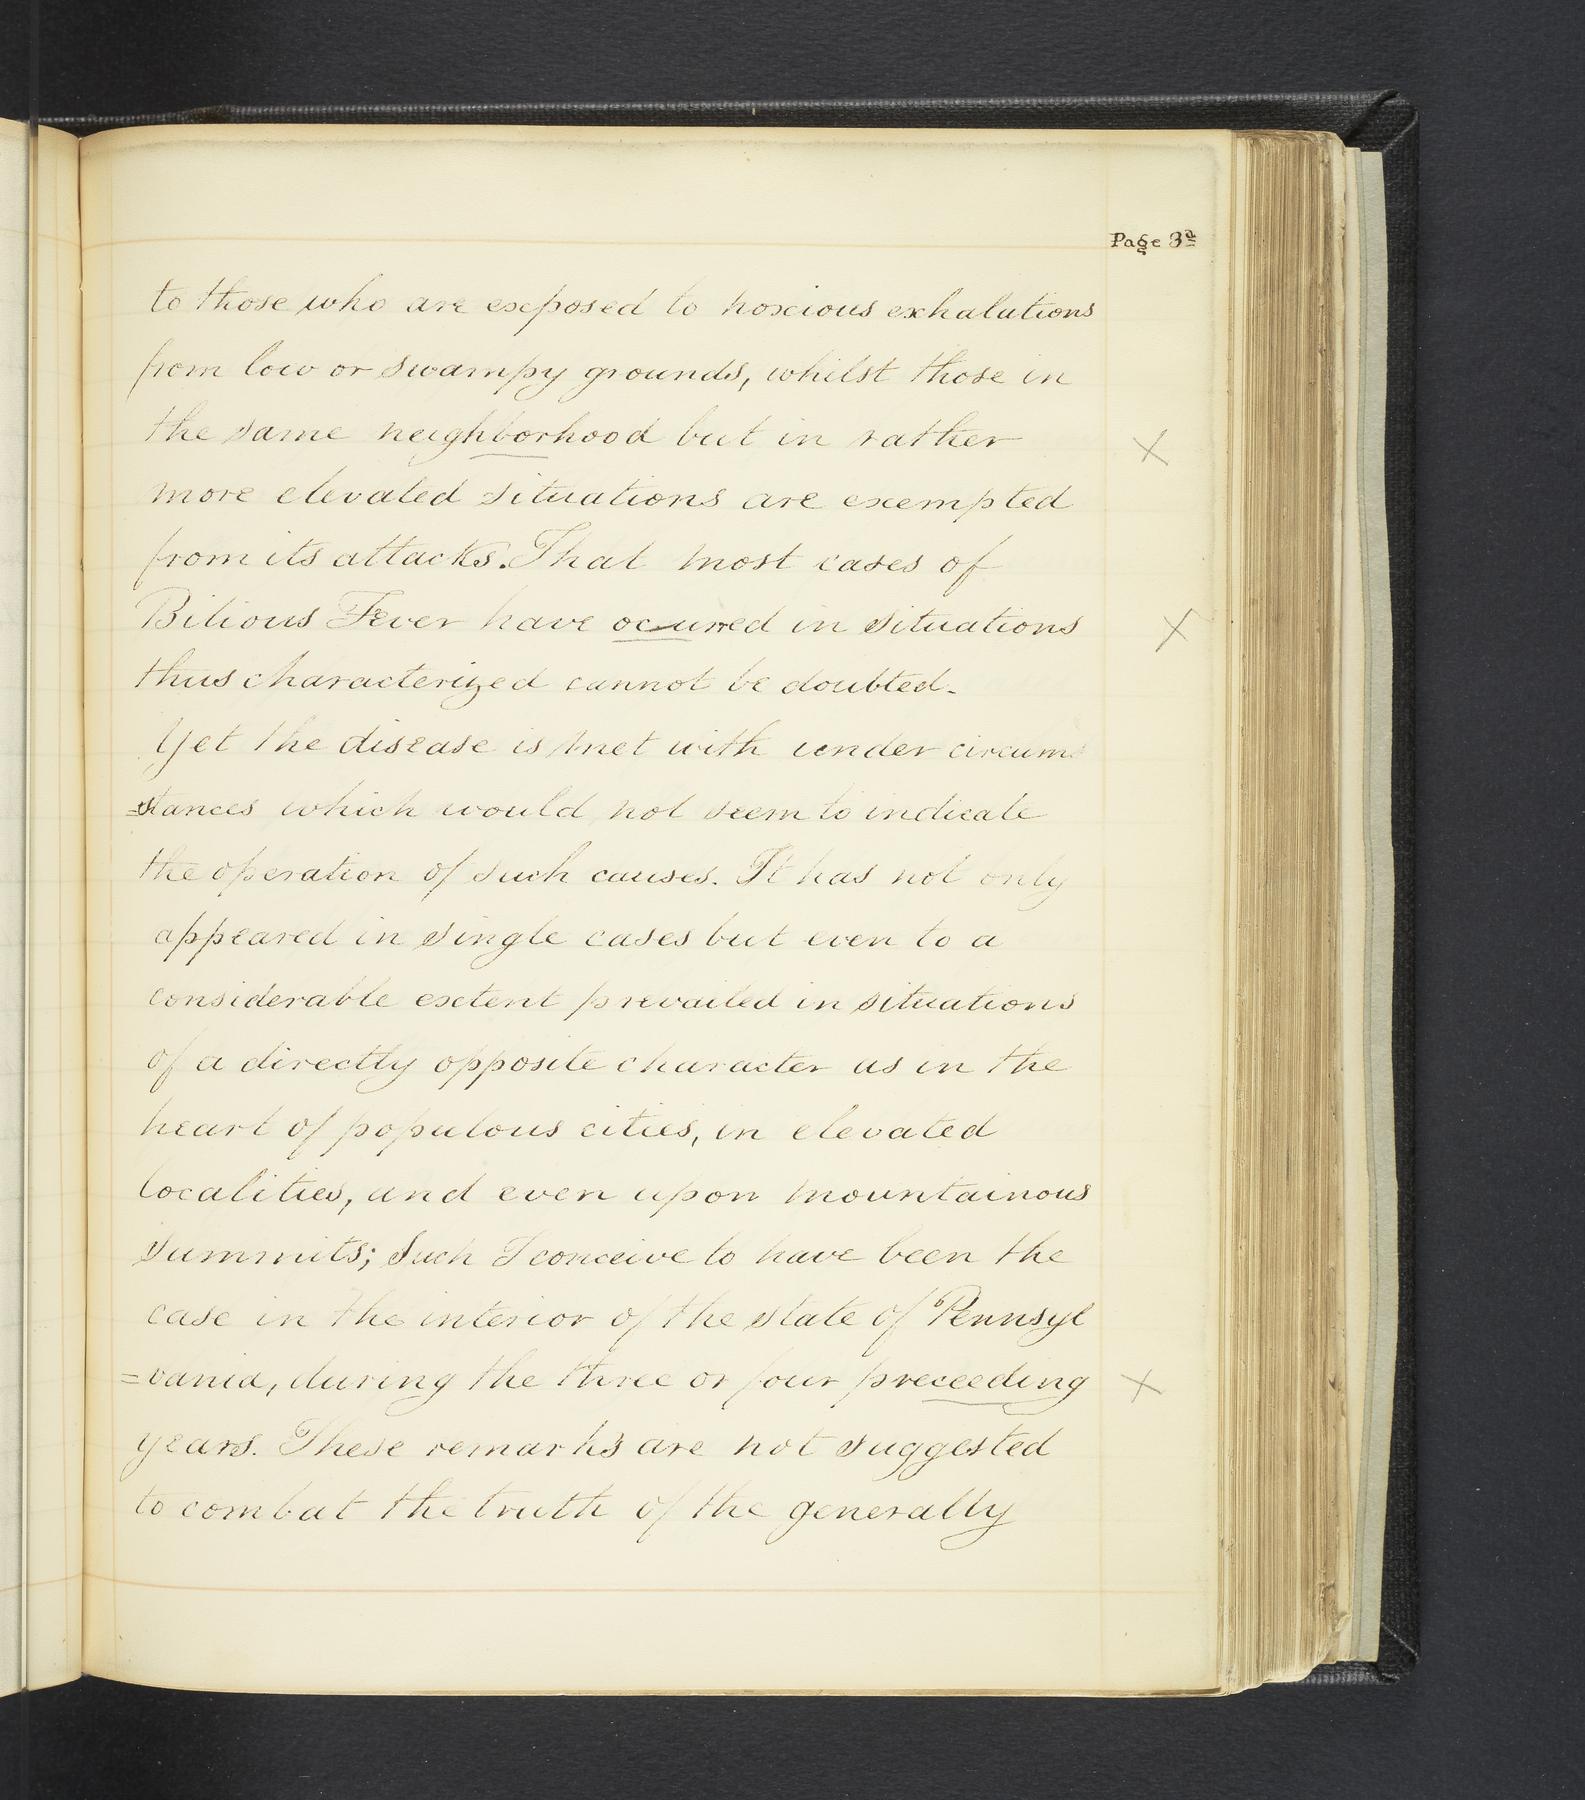 Page 3d
to those who are exposed to noxious exhalations
from low or swampy grounds, whilst those in
the same neighborhood but in rather
more elevated situations are exempted
from its attacks. That most cases of
Bilious Fever have ocurred in situations
thus characterized cannot be doubted.
Yet the disease is met with under circum
=stances which would not seem to indicate
the operation of such causes. It has not only
appeared in single cases but even to a
considerable extent prevailed in situations
of a directly opposite character as in the
heart of populous cities, in elevated
localities, and even upon mountainous
summits; Such I conceive to have been the
case in the interior of the state of Pennsyl
=vania, during the three or four preceeding
years. These remarks are not suggested
to combat the truth of the generally